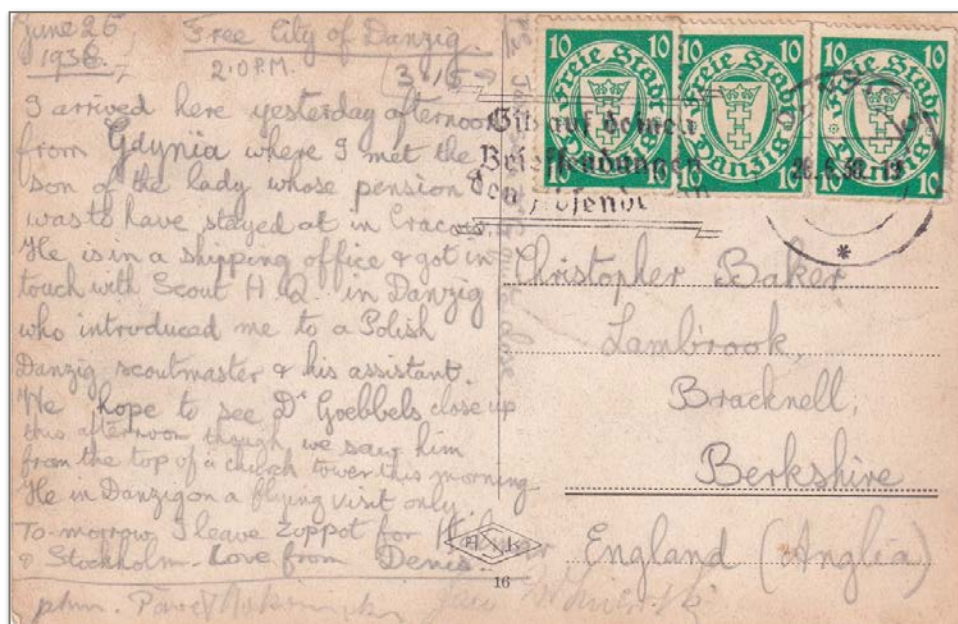 June 26
1938,
Free City of Danzig
2.0 P.M.
3.15
I arrived here yesterday afternoon
from Gdynia where I met the
son of the lady whose pension I
was to have stayed at in Cracow.
He is in a shipping office & got in
touch with Scout H.Q. in Danzig
who introduced me to a Polish
Danzig scoutmaster & his assistant.
We hope to see Dr Goebbels close up
this afternoon though we saw him
from the top of a church tower this morning
He in Danzig on a flying visit only.
To-morrow I leave Zoppot for
& Stockholm. Love from Denis.
phm.
10 10 Freie Stadt Danzig 10
10 10 Freie Stadt Danzig 10
10 10 Freie Stadt Danzig 10
Gib auf deinen
Briefsendungen
den
26.6.38
Christopher Baker
Lambrook,
Bracknell,
Berkshire
England (Anglia)
16